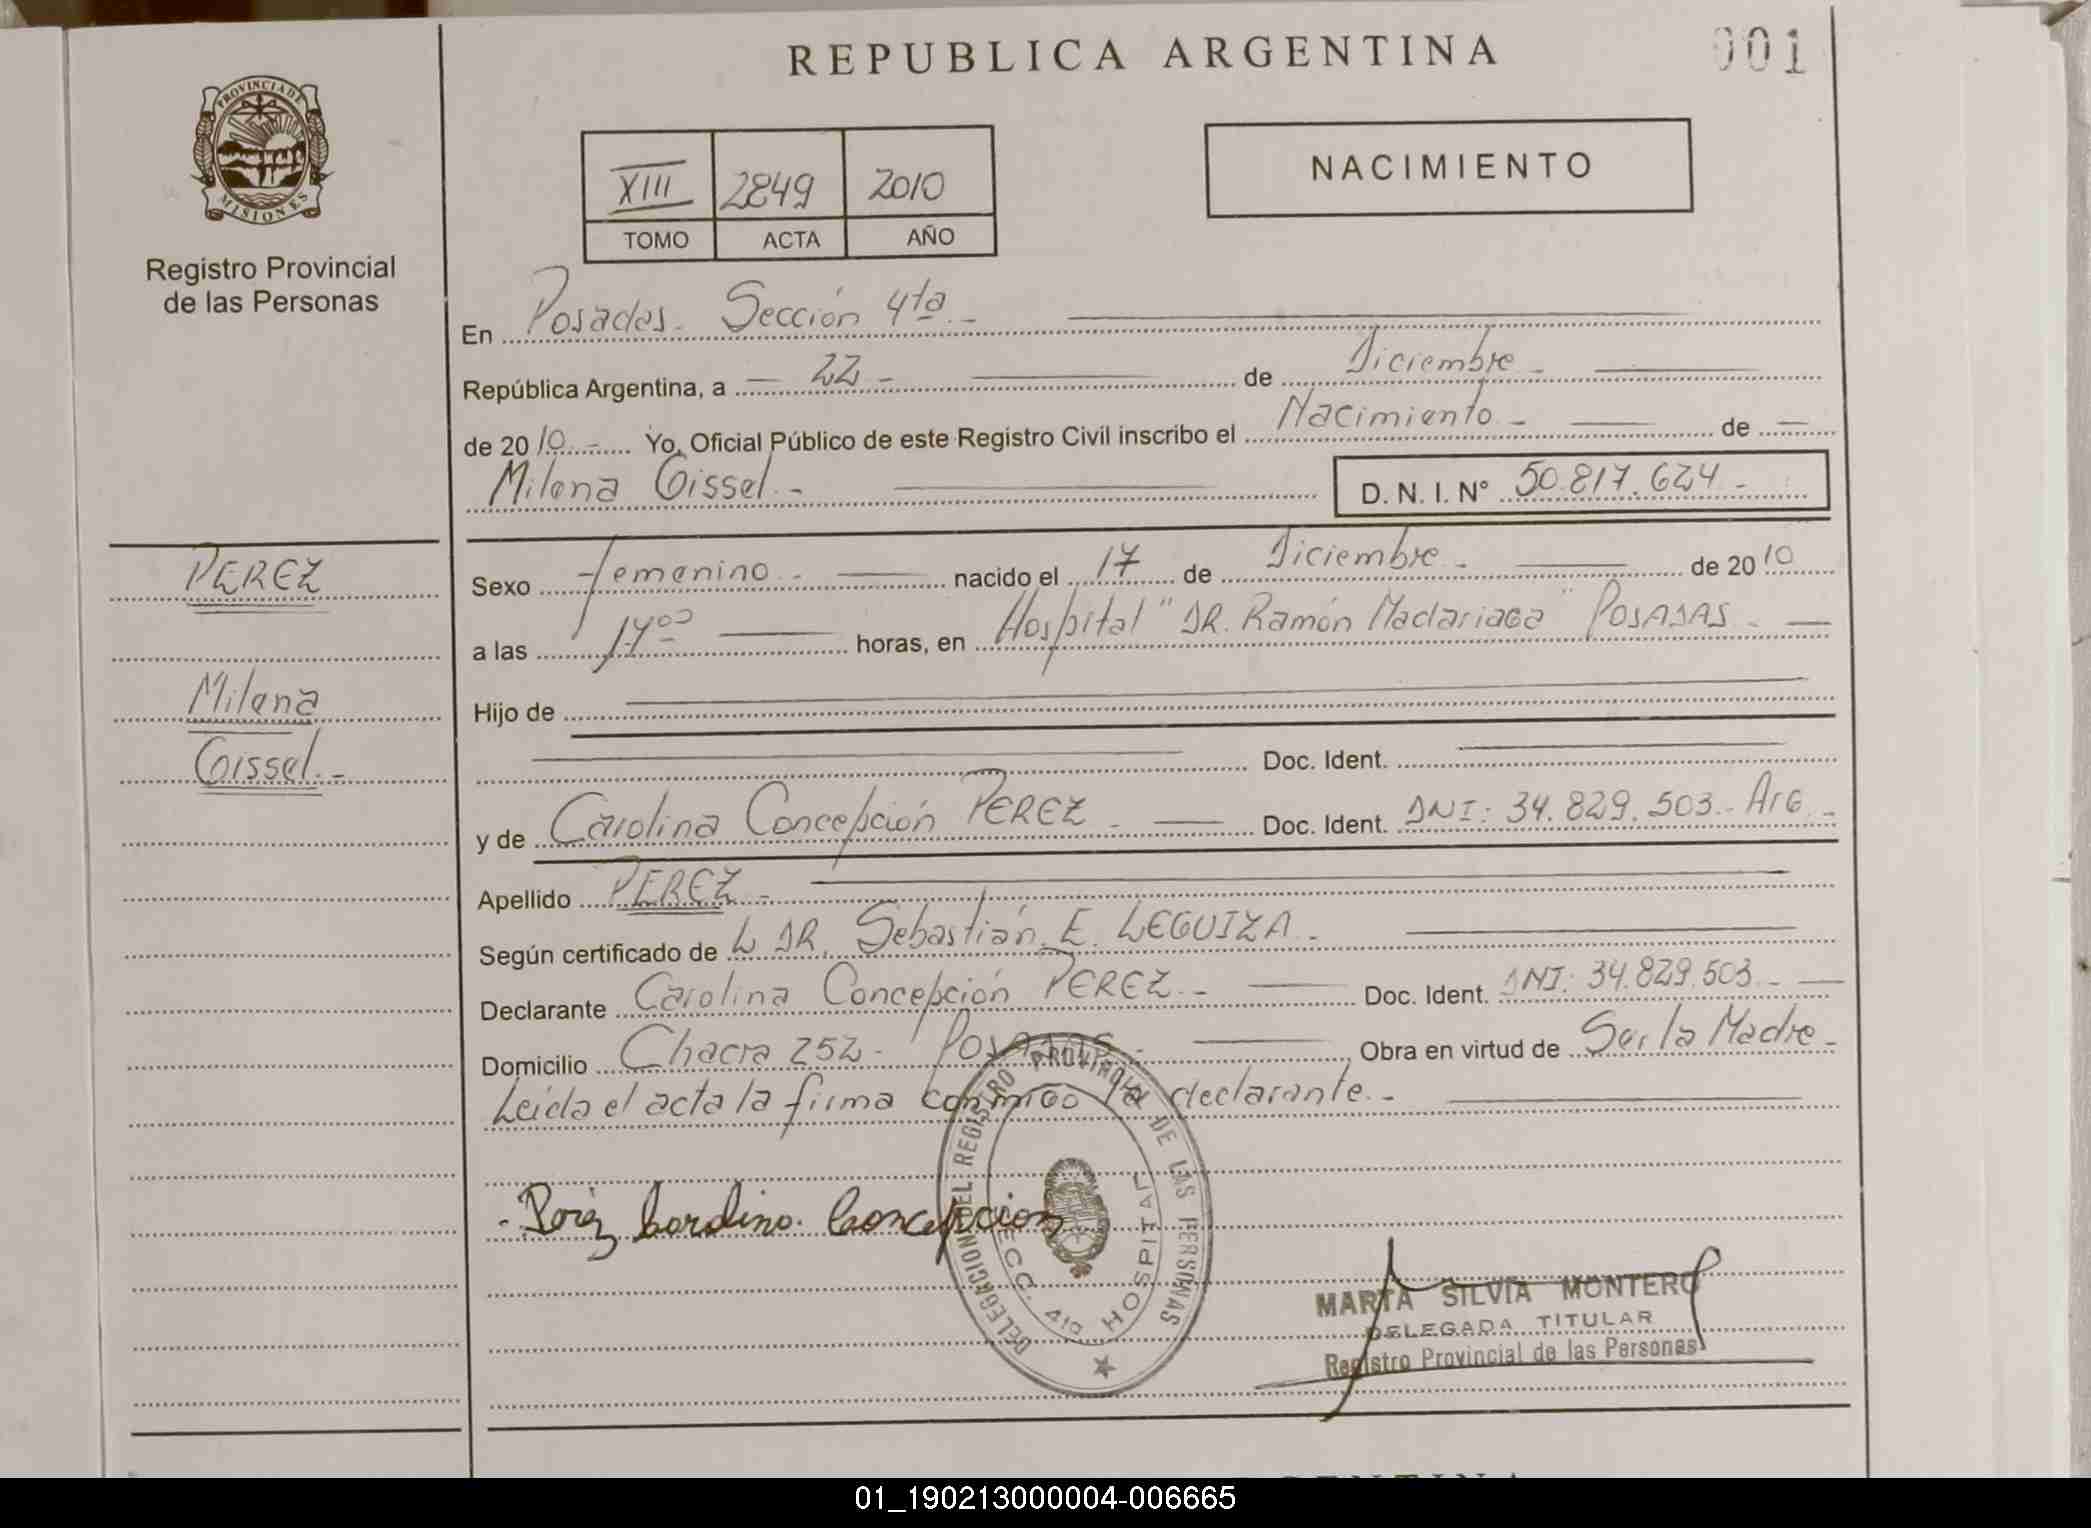 REPUBLICA ARGENTINA
001
PROVINCIA DE MISIONES
Registro Provincial
de las Personas
XIII 2849 2010
TOMO ACTA AÑO
NACIMIENTO
En Posadas. Sección 4ta.-
República Argentina, a - 22 - de Diciembre -
de 2010.- Yo, Oficial Público de este Registro Civil inscribo el Nacimiento - de -
Milena Gissel.- D. N. I. N° 50.817.624-
PEREZ
Milena
Gissel.-
Sexo Femenino.- nacido el 17 de Diciembre.- de 2010
a las 14:00 horas, en Hospital "DR. Ramón Madariaga" POSADAS.-
Hijo de
Doc. Ident.
y de Carolina Concepción PEREZ.- Doc. Ident. DNI: 34.829.503.- Arg.-
Apellido PEREZ.-
Según certificado de L DR. Sebastián. E. LEGUIZA.-
Declarante Carolina Concepción PEREZ.- Doc. Ident. DNI: 34.829.503.-
Domicilio Chacra 252- Posadas.- Obra en virtud de Ser la Madre-
Leida el acta la firma conmigo la declarante.-
Concepcion
DELEGACION DEL REGISTRO PROVINCIAL DE LAS PERSONAS
SECC. 4ta HOSPITAL
MARTA SILVIA MONTERO
DELEGADA TITULAR
Registro Provincial de las Personas
01_190213000004-006665